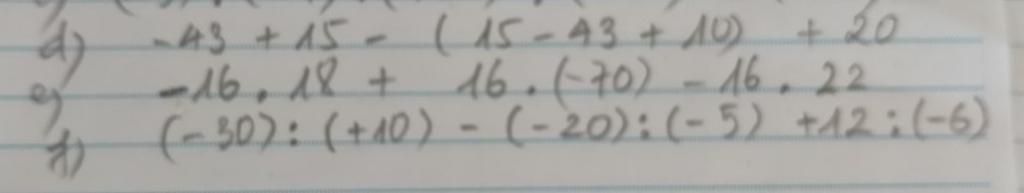 d) -43 + 15 - (15 - 43 + 10) + 20
e) -16 . 18 + 16 . (-70) - 16 . 22
f) (-30) : (+10) - (-20) : (-5) + 12 : (-6)